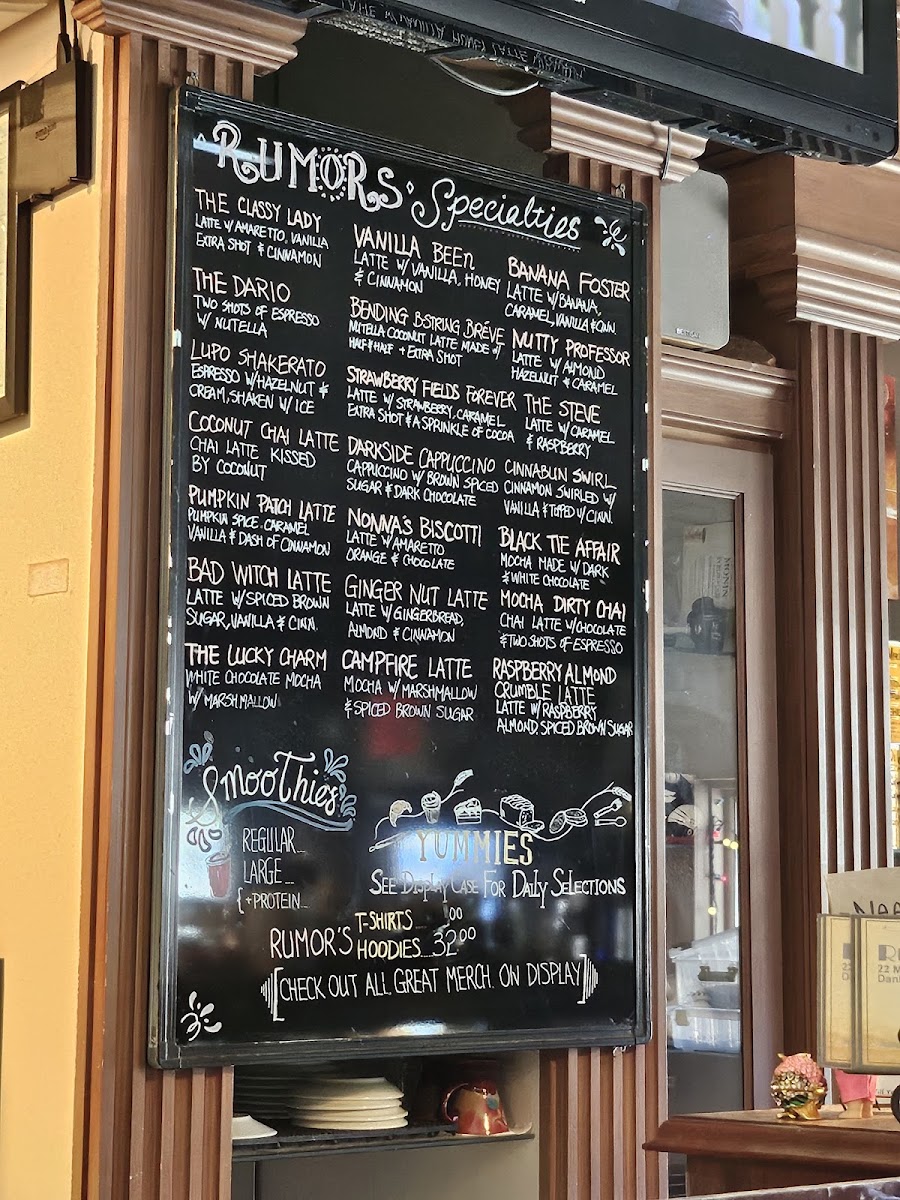 RUMORS' Specialties
THE CLASSY LADY
LATTE W/ AMARETTO, VANILLA
EXTRA SHOT & CINNAMON
THE DARIO
TWO SHOTS OF ESPRESSO
W/ NUTELLA
LUPO SHAKERATO
ESPRESSO W/ HAZELNUT &
CREAM, SHAKEN W/ ICE
COCONUT CHAI LATTE
CHAI LATTE KISSED
BY COCONUT
PUMPKIN PATCH LATTE
PUMPKIN SPICE, CARAMEL
VANILLA & DASH OF CINNAMON
BAD WITCH LATTE
LATTE W/ SPICED BROWN
SUGAR, VANILLA & CINN.
THE LUCKY CHARM
WHITE CHOCOLATE MOCHA
W/ MARSHMALLOW
VANILLA BEEN
LATTE W/ VANILLA, HONEY
& CINNAMON
BENDING BSTRING BRÉVE
NUTELLA COCONUT LATTE MADE W/
HALF & HALF + EXTRA SHOT
STRAWBERRY FIELDS FOREVER
LATTE W/ STRAWBERRY, CARAMEL
EXTRA SHOT & A SPRINKLE OF COCOA
DARKSIDE CAPPUCCINO
CAPPUCCINO W/ BROWN SPICED
SUGAR & DARK CHOCOLATE
NONNA'S BISCOTTI
LATTE W/ AMARETTO
ORANGE & CHOCOLATE
GINGER NUT LATTE
LATTE W/ GINGERBREAD,
ALMOND & CINNAMON
CAMPFIRE LATTE
MOCHA W/ MARSHMALLOW
& SPICED BROWN SUGAR
BANANA FOSTER
LATTE W/ BANANA,
CARAMEL, VANILLA & CINN
NUTTY PROFESSOR
LATTE W/ ALMOND
HAZELNUT & CARAMEL
THE STEVE
LATTE W/ CARAMEL
& RASPBERRY
CINNABUN SWIRL
CINNAMON SWIRLED W/
VANILLA & TOPPED W/ CINN.
BLACK TIE AFFAIR
MOCHA MADE W/ DARK
& WHITE CHOCOLATE
MOCHA DIRTY CHAI
CHAI LATTE W/ CHOCOLATE
& TWO SHOTS OF ESPRESSO
RASPBERRY ALMOND
CRUMBLE LATTE
LATTE W/ RASPBERRY
ALMOND, SPICED BROWN SUGAR
SMOOTHIES
REGULAR...
LARGE...
{+PROTEIN...
YUMMIES
SEE DISPLAY CASE FOR DAILY SELECTIONS
RUMOR'S
T-SHIRTS ..... 00
HOODIES.....32.00
[CHECK OUT ALL GREAT MERCH. ON DISPLAY]